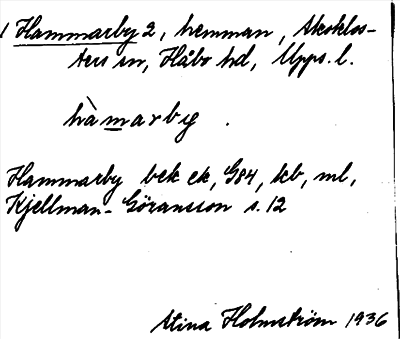 1 Hammarby 2, hemman, Skoklos-
ters sn, Håbo hd, Upps. l.
hàmarby .
Hammarby bek ek, G84, kb, ml,
Kjellman-Göransson s. 12
Stina Holmström 1936